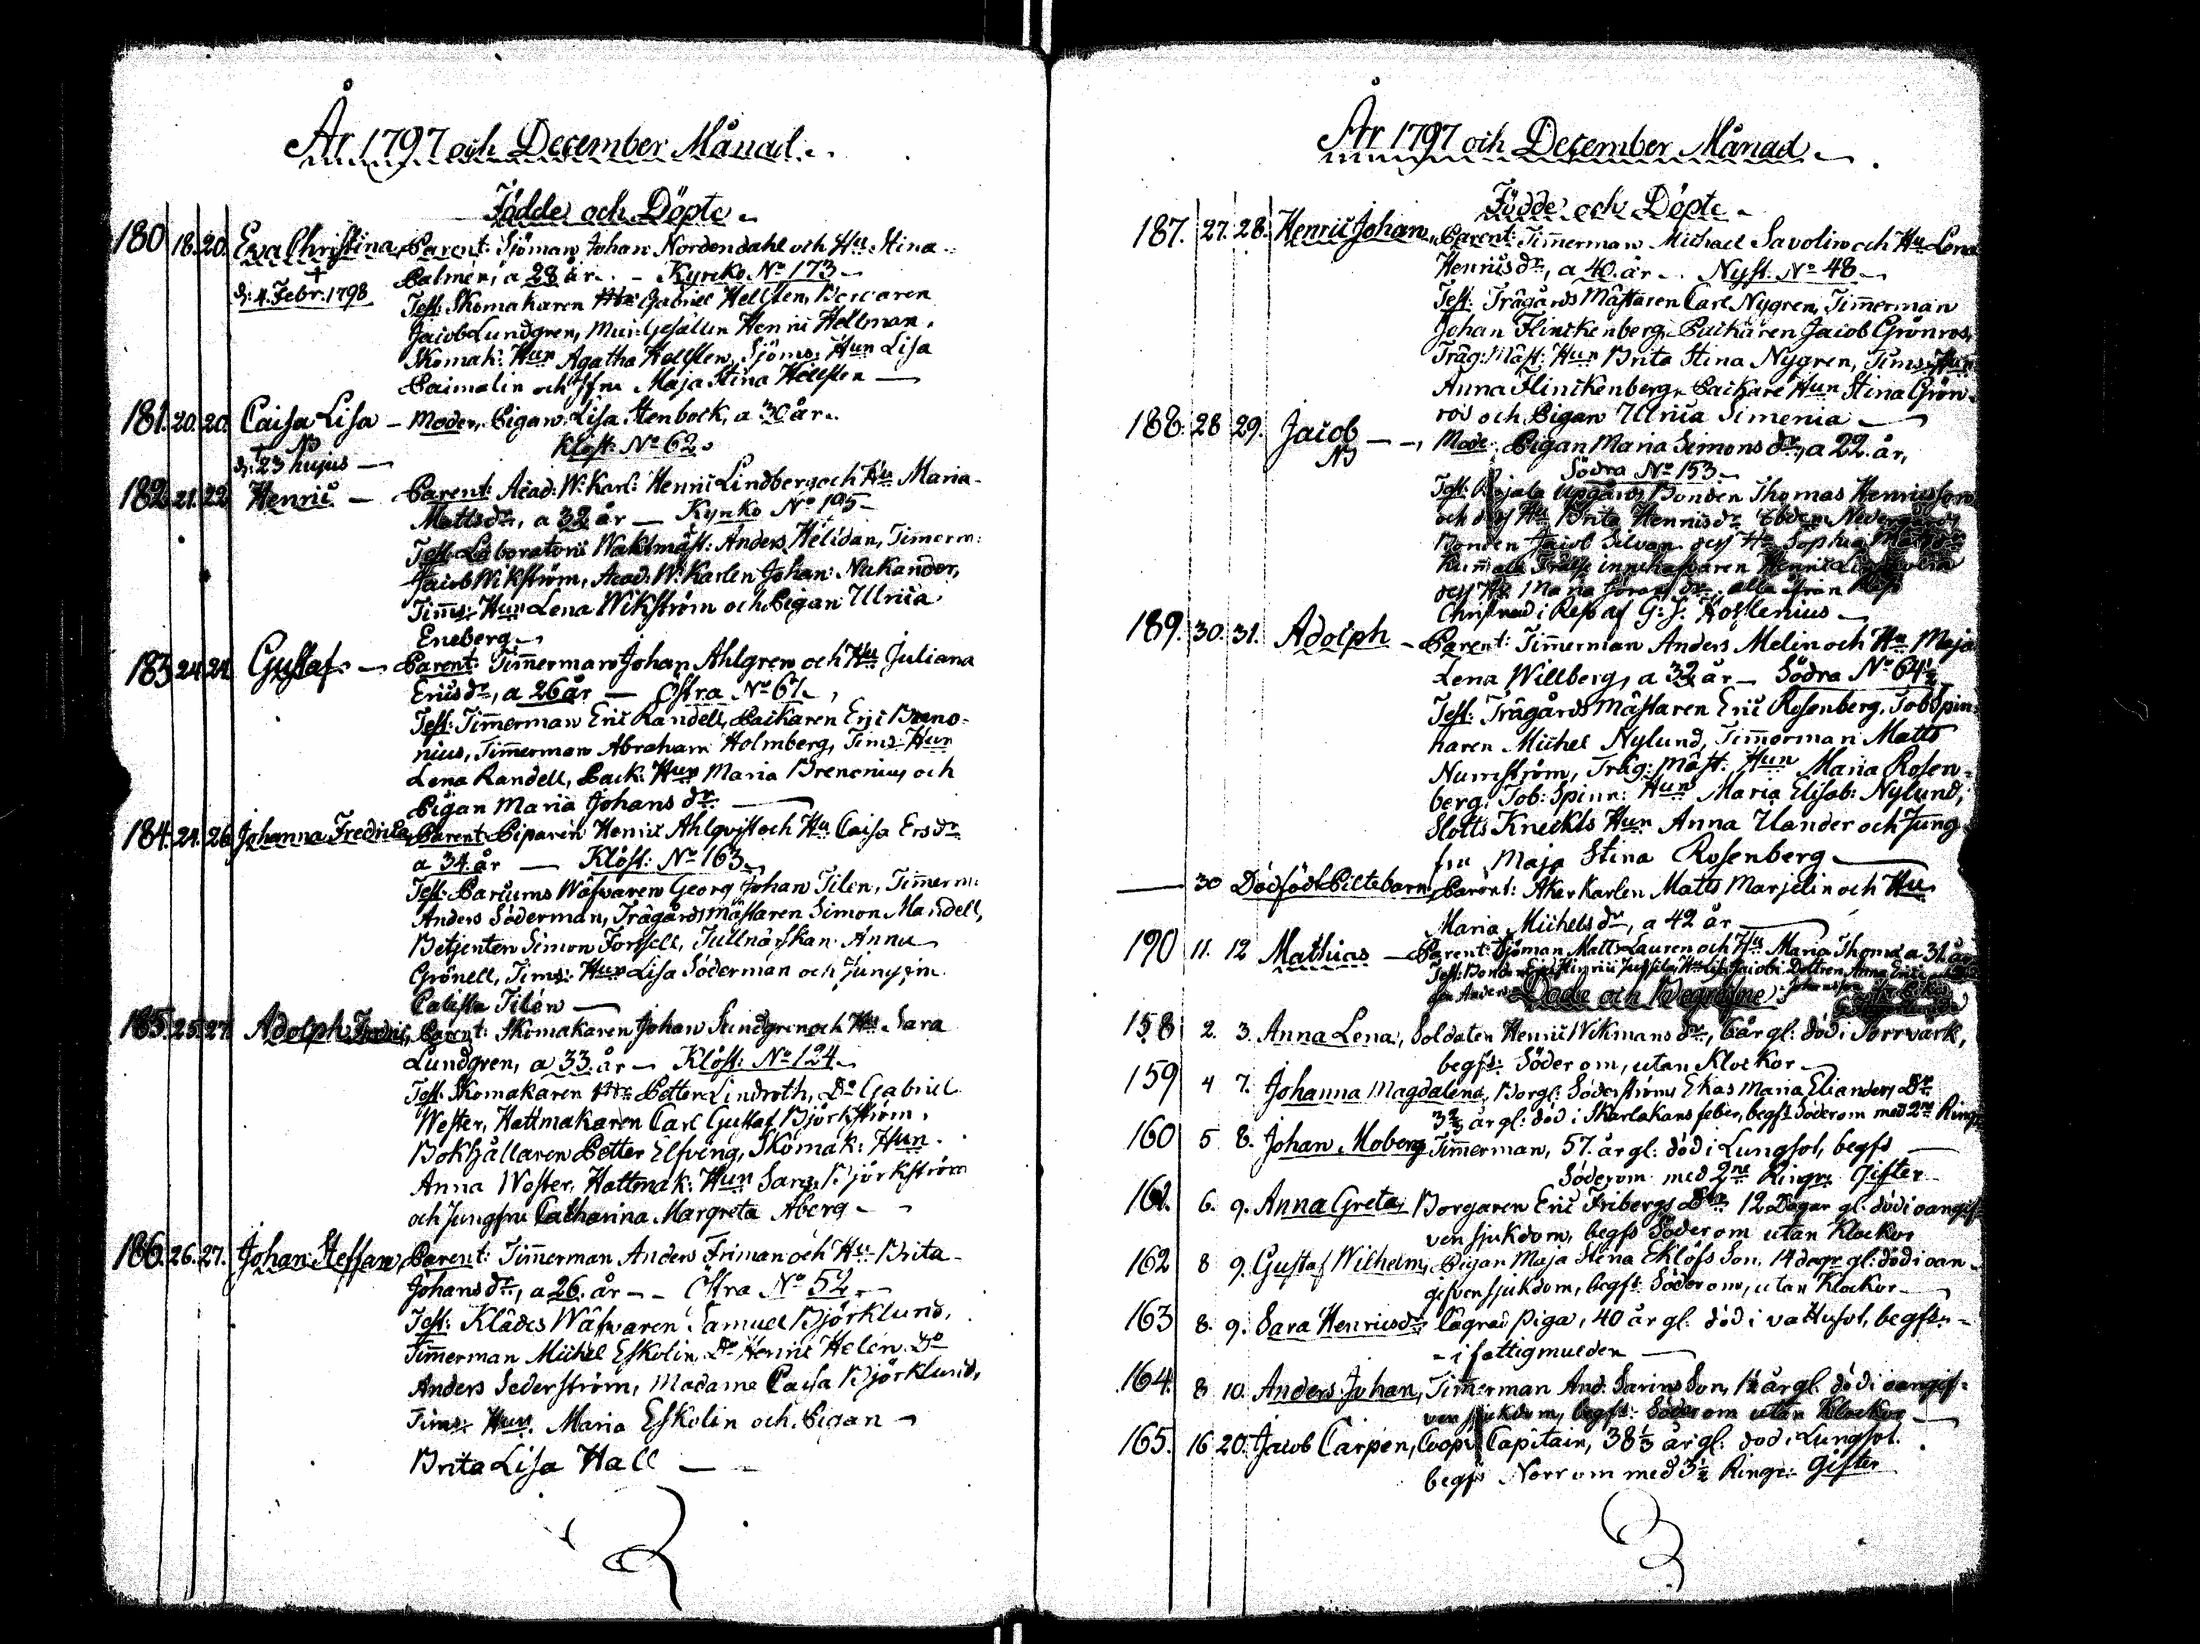 År 1797 och December Månad.
Födde och Döpte.
180 18. 20. Eva Christina, Parent: Sjöman Johan Nordendahl och Hu Stina
Palmén, a 28 år. - Kyrko No 173 -
† d: 4. Febr. 1798 Test: Skomakaren Gabriel Hellsten, Borgaren
Jacob Lundgren, Mur: Gesällen Henric Hellman,
Skomak: Hun Agatha Hellsten, Sjöms: Hun Lisa
Paimalin och Jfru Maja Stina Hellsten —
181. 20. 20. Caisa Lisa - Moder, Pigan Lisa Stenbock, a 30 år.
† d: 23 hujus — Klöst: No 62.
182 21. 22 Henric — Parent: Acad: W: Karl: Henric Lindberg och Hu Maria
Mattsdr, a 32 år — Kyrko No 195 -
Test: Laboratorii Waktmäst: Anders Helidan, Timerm:
Jacob Wikström, Acad: W: Karlen Johan Nukander,
Timms: Hun Lena Wikström och Pigan Ulrica
Eneberg —
183 24 24. Gustaf. — Parent: Timmerman Johan Ahlgren och Hu Juliana
Ericsdr, a 26 år — Östra No 67.
Test: Timmerman Eric Randell, Packaren Eric Breno-
nius, Timmerman Abraham Holmberg, Tims: Hun
Lena Randell, Pack: Hun Maria Brenonius och
Pigan Maria Johansdr. —
184. 24. 26 Johanna Fredrica, Parent: Piparen Henric Ahlqvist och Hu Caisa Ersdr
a 34. år — Klöst: No 163 -
Test: Parcums Wäfvaren Georg Johan Tilen, Timmerm:
Anders Söderman, Trägårdsmästaren Simon Mandell,
Betjenten Simon Forssell, Tullnärskan Anna
Grönell, Tims: Hun Lisa Söderman och Jungfru
Calista Tilén —
185. 25. 27. Adolph Fredric, Parent: Skomakaren Johan Lundgren och Hu Sara
Lundgren, a 33. år — Klöst: No 124 -
Test: Skomakaren Petter Lindroth, Do Gabriel
Wester, Hattmakaren Carl Gustaf Björkström,
Bokhållaren Petter Elfving, Skomak: Hun
Anna Wester, Hattmak: Hun Sara Björkström
och Jungfru Catharina Margreta Åberg -
186. 26. 27. Johan Steffan, Parent: Timmerman Anders Friman och Hu Brita
Johansdr, a 26. år - - Östra No 52 -
Test: Klädes Wäfvaren Samuel Björklund,
Timmerman Michel Eskolin, Do Henric Helén Do
Anders Sederström, Madame Caisa Björklund,
Tims: Hun Maria Eskolin och Pigan -
Brita Lisa Hall — -
År 1797 och December Månad -
Födde och Döpte -
187. 27. 28. Henric Johan, Parent: Timmerman Michael Savolin och Hu Lena
Henricsdr, a 40. år - Nyst. No 48 -
Test: Trägårds Mästaren Carl Nygren, Timmerman
Johan Flinckenberg, Packaren Jacob Grönros,
Träg: Mäst: Hun Brita Stina Nygren, Tims: Hun
Anna Flinckenberg, Packare Hun Stina Grön-
ros och Pigan Ulrica Simenia —
188. 28 29. Jacob - -, Mode: Pigan Maria Simonsdr, a 22. år,
Södra No 153 -
Test: Upgårds Bonden Thomas Henricsson
och dess Hu Brita Henricsdr
Bonden Jacob Silvan dess Hu Sophia
innehafvaren Henric
dess Hu Maria alla ifrån
Christnad i Reso af G: J: Kostlenius —
189. 30. 31. Adolph - Parent: Timmerman Anders Melin och Hu Maja
Lena Willberg, a 32 år - Södra No 64½
Test: Trägårds Mästaren Eric Rosenberg, Tob: Spin-
naren Michel Nylund, Timmerman Matts
Nurmström, Träg: Mäst: Hun Maria Rosen-
berg, Tob: Spinn: Hun Maria Elisab: Nylund,
Slotts Kneckts Hun Anna Ulander och Jung-
fru Maja Stina Rosenberg —
— 30 Dödfödt Piltebarn, Parent: Åkerkarlen Matts Marjelin och Hu
Maria Michelsdr, a 42 år —
190 11. 12 Mathias - Parent: Sjöman Matts Lauren och Hu Maria Thomæ a 31. år
Döde och Begrafne
158 2. 3. Anna Lena, Soldaten Henric Wikmans dr, 6 år gl: död i Torrvärk,
begfs: Söder om, utan Klockor -
159 4 7. Johanna Magdalena, Borg: Söderströms Enkas Maria Elianders Dr
3⅔ år gl: död i Skarlakans feber, begfs Söder om med 2ne Ringr
160 5 8. Johan Moberg Timmerman, 57. år gl: död i Lungsot, begfs —
Söder om med 2ne Ringr: Gifter
161. 6. 9. Anna Greta, Borgaren Eric Fribergs Dr 12 Dagar gl: död i oangif-
ven sjukdom, begfs Söder om utan Klockor
162 8 9. Gustaf Wilhelm, Pigan Maja Stena Eklöfs Son, 14 dagr gl: död i oan-
gifven sjukdom, begfs: Söder om, utan Klockor -
163 8. 9. Sara Henricsdr Lägrad Piga, 40 år gl: död i vattusot, begfs -
- i fattigmulden —
164. 8 10. Anders Johan, Timmerman And: Sarins Son, 1½ år gl: död i oangif-
ven sjukdom, begfs: Söder om utan Klockor —
165. 16 20. Jacob Carpén, Coopv: Capitain, 38⅓ år gl: död i Lungsot.
begfs Norr om med 3½ Ringr: Gifter